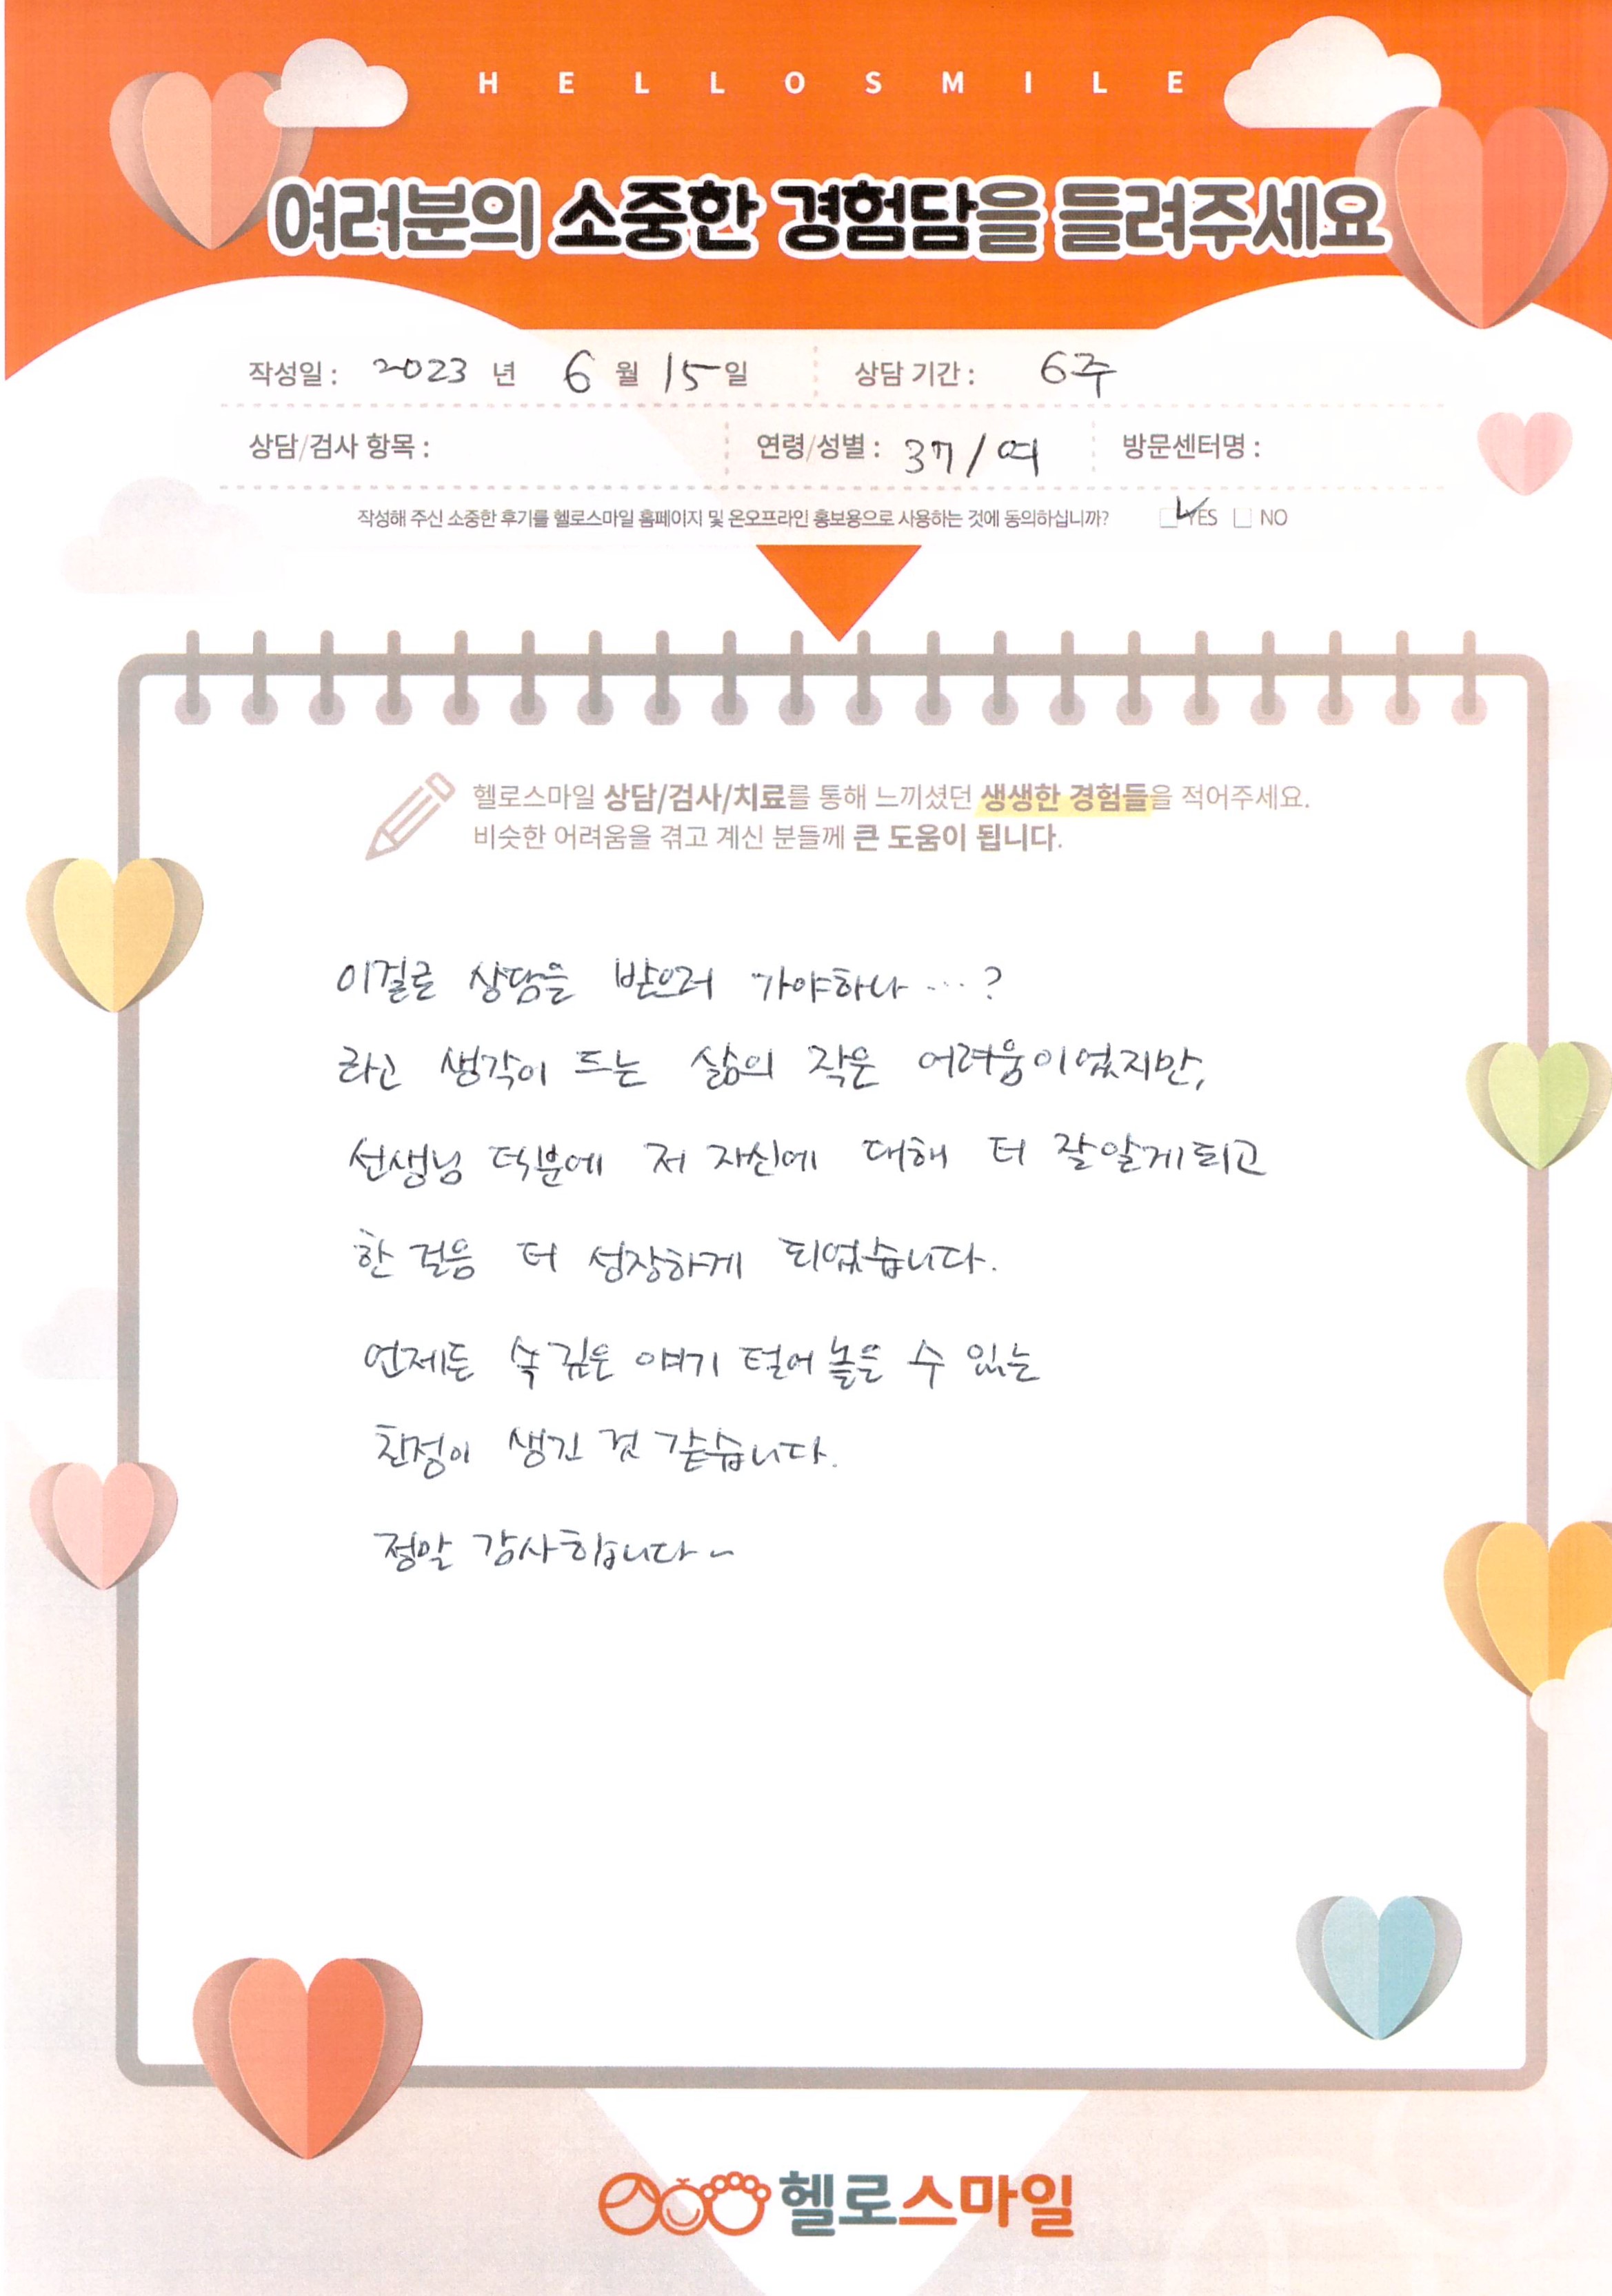 HELLOSMILE
여러분의 소중한 경험담을 들려주세요
작성일 : 2023 년 6 월 15 일 상담 기간 : 6주
상담/검사 항목 : 연령/성별 : 37/여 방문센터명 :
작성해 주신 소중한 후기를 헬로스마일 홈페이지 및 온오프라인 홍보용으로 사용하는 것에 동의하십니까? YES NO
헬로스마일 상담/검사/치료를 통해 느끼셨던 생생한 경험들을 적어주세요.
비슷한 어려움을 겪고 계신 분들께 큰 도움이 됩니다.
이걸로 상담을 받으러 가야하나 ...?
라고 생각이 드는 삶의 작은 어려움이었지만,
선생님 덕분에 저 자신에 대해 더 잘알게되고
한 걸음 더 성장하게 되었습니다.
언제든 속 깊은 얘기 털어 놓을 수 있는
친정이 생긴 것 같습니다.
정말 감사합니다~
헬로스마일